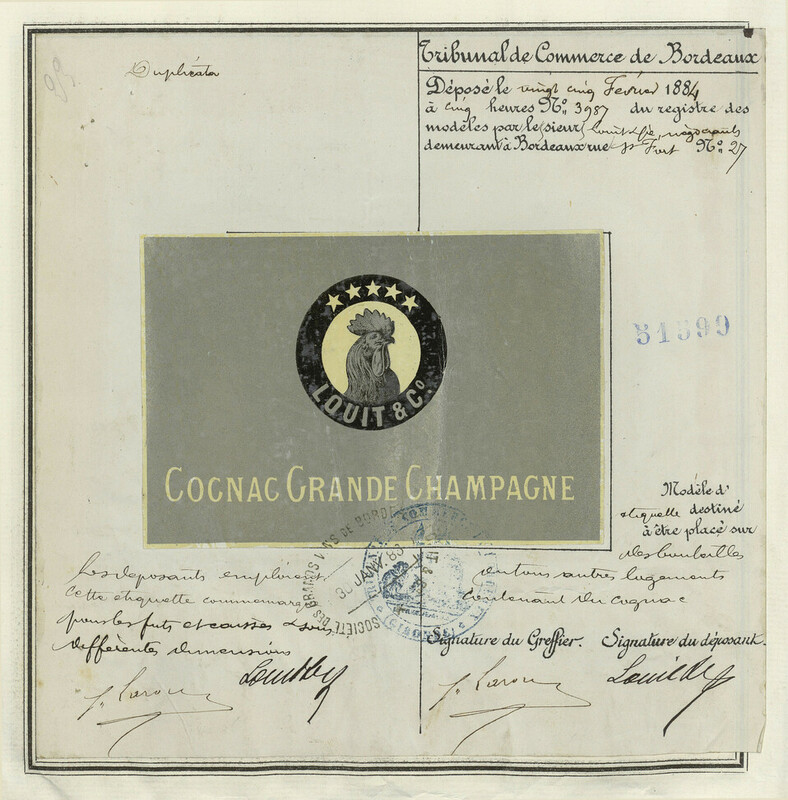 Duplicata
Tribunal de Commerce de Bordeaux
Déposé le vingt cinq Février 1884
à cinq heures No. 3987 du registre des
modèles par le (sieur) Louit & Cie, négociants
demeurant à Bordeaux rue St Fort No. 27
LOUIT & Co
COGNAC GRANDE CHAMPAGNE
51599
Modèle d'
étiquette destiné
à être placé sur
des bouteilles
ou tous autres logements
contenant du cognac
Les déposants emploient
cette étiquette comme marque
pour les futs et caisses &
différentes dimensions
SOCIÉTÉ DES GRANDS VINS DE BORD
Signature du Greffier. Signature du déposant.